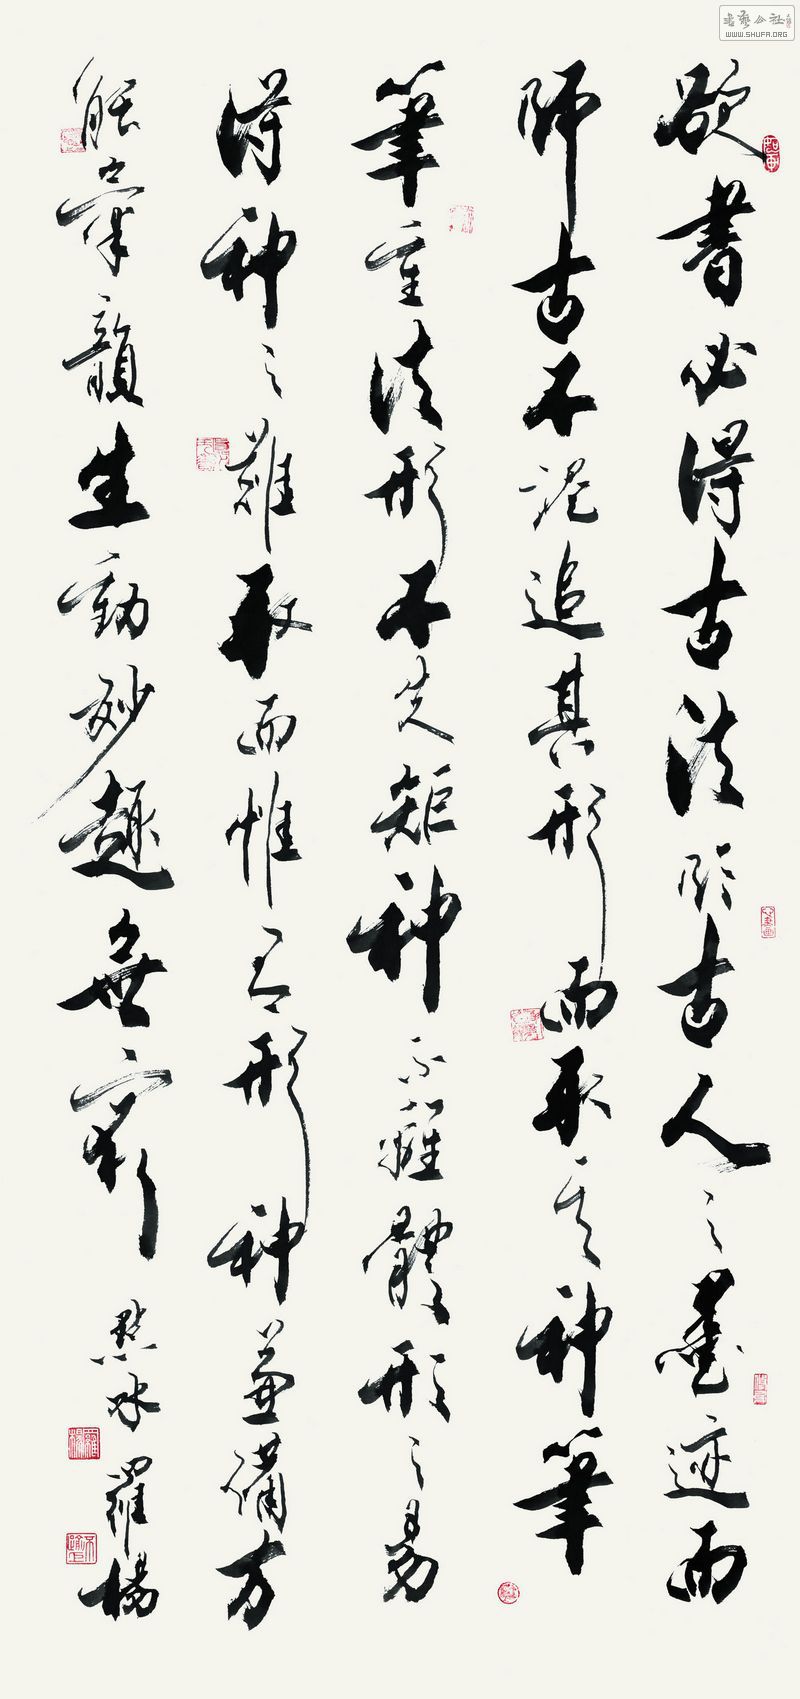 欲書必得古法臨古人之墨迹而
師古不泥追其形而取其神筆
筆重法形不失矩神不離體形之易
得神之難取而惟有形神兼備方
能氣韻生動妙趣無窮
點冰羅楊
書藝公社
WWW.SHUFA.ORG